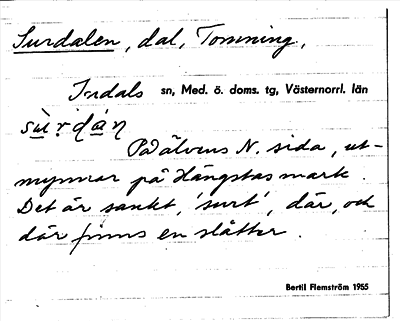 Surdalen, dal, Tomming,
Indals sn, Med. ö. doms. tg, Västernorrl. län
sù̱r̤dá̱n̤
På älvens N. sida, ut-
mynnar på Hängstas mark.
Det är sankt, 'surt', där, och
där finns en slåtter.
Bertil Flemström 1955